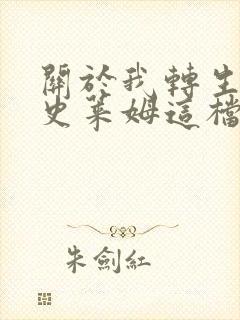 關於我轉生
史萊姆這檔
朱劍紅